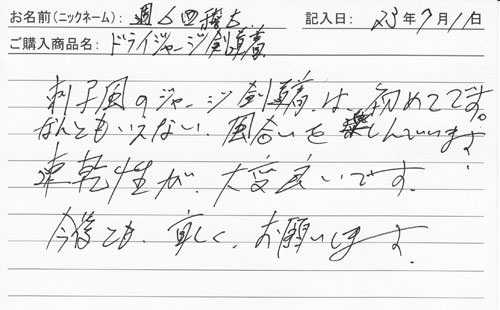 お名前(ニックネーム): 週6回稽古...
記入日: 23年7月11日
ご購入商品名: ドライジャージ剣道着
刺子風のジャージ剣道着は、初めてです。
なんともいえない、風合いを楽しんでいます。
速乾性が、大変良いです。
今後とも、宜しく、お願いします。